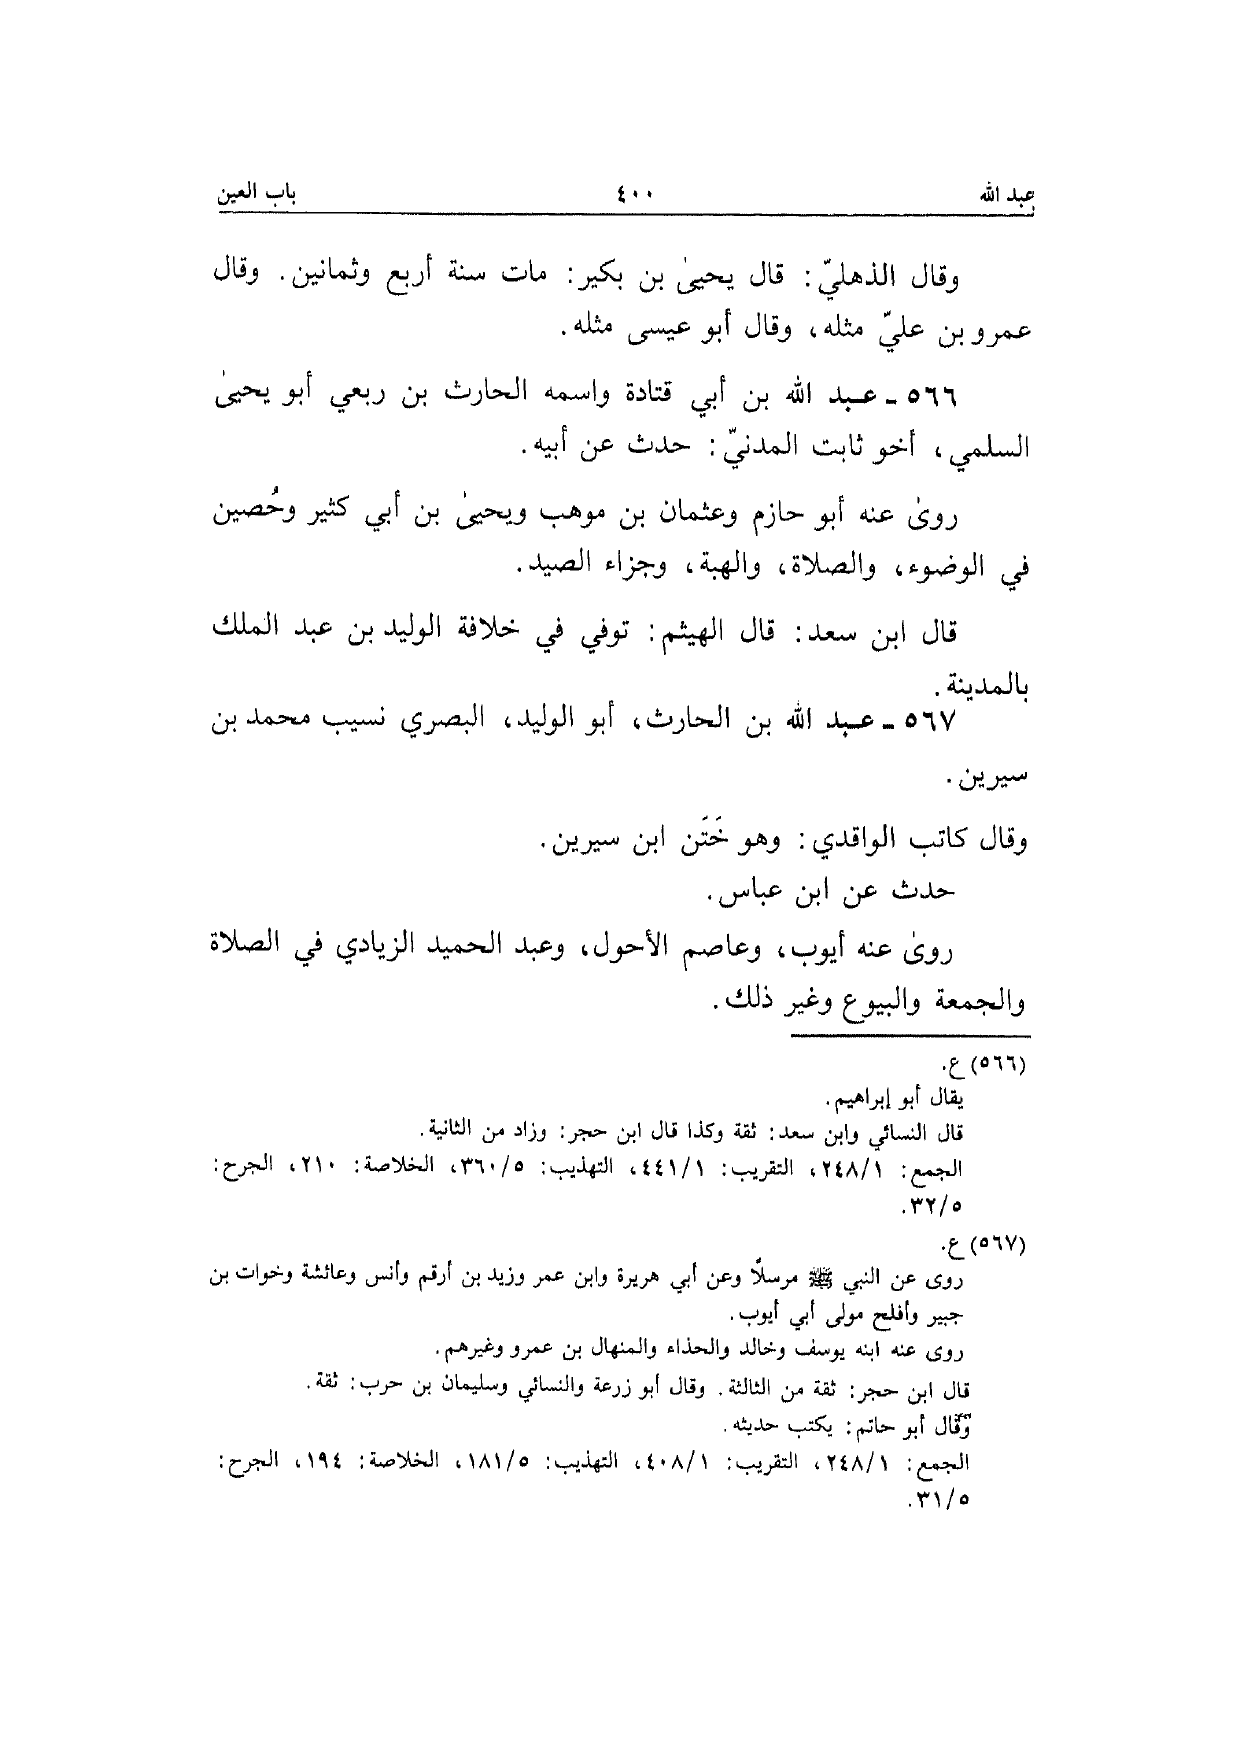 عبد الله ٤٠٠ باب العين
وقال الذهليّ: قال يحيىٰ بن بكير: مات سنة أربع وثمانين. وقال
عمرو بن عليّ مثله، وقال أبو عيسى مثله.
٥٦٦ - عبد الله بن أبي قتادة واسمه الحارث بن ربعي أبو يحيىٰ
السلمي، أخو ثابت المدنيّ: حدث عن أبيه.
روىٰ عنه أبو حازم وعثمان بن موهب ويحيىٰ بن أبي كثير وحُصين
في الوضوء، والصلاة، والهبة، وجزاء الصيد.
قال ابن سعد: قال الهيثم: توفي في خلافة الوليد بن عبد الملك
بالمدينة.
٥٦٧ - عبد الله بن الحارث، أبو الوليد، البصري نسيب محمد بن
سيرين.
وقال كاتب الواقدي: وهو خَتَن ابن سيرين.
حدث عن ابن عباس.
روىٰ عنه أيوب، وعاصم الأحول، وعبد الحميد الزيادي في الصلاة
والجمعة والبيوع وغير ذلك.
(٥٦٦) ع.
يقال أبو إبراهيم.
قال النسائي وابن سعد: ثقة وكذا قال ابن حجر: وزاد من الثانية.
الجمع: ٢٤٨/١، التقريب: ٤٤١/١، التهذيب: ٣٦٠/٥، الخلاصة: ٢١٠، الجرح:
٣٢/٥.
(٥٦٧) ع.
روى عن النبي ﷺ مرسلًا وعن أبي هريرة وابن عمر وزيد بن أرقم وأنس وعائشة وخوات بن
جبير وأفلح مولى أبي أيوب.
روى عنه ابنه يوسف وخالد والحذاء والمنهال بن عمرو وغيرهم.
قال ابن حجر: ثقة من الثالثة. وقال أبو زرعة والنسائي وسليمان بن حرب: ثقة.
وقال أبو حاتم: يكتب حديثه.
الجمع: ٢٤٨/١، التقريب: ٤٠٨/١، التهذيب: ١٨١/٥، الخلاصة: ١٩٤، الجرح:
٣١/٥.